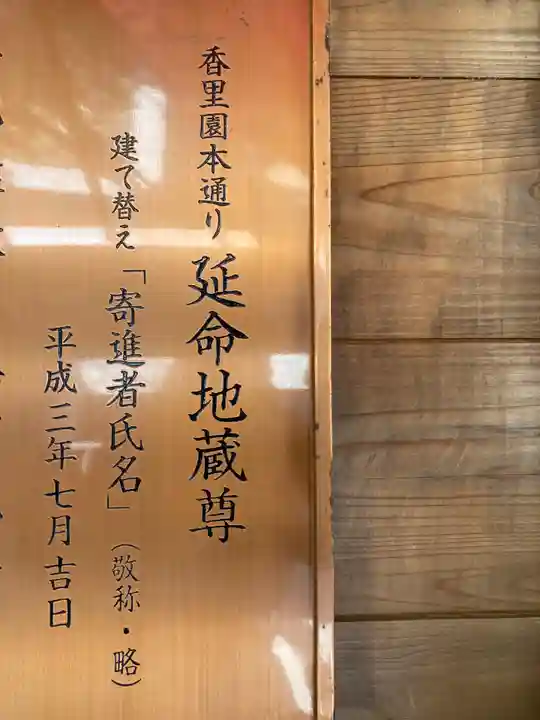 香里園本通り 延命地蔵尊
建て替え「寄進者氏名」(敬称・略)
平成三年七月吉日